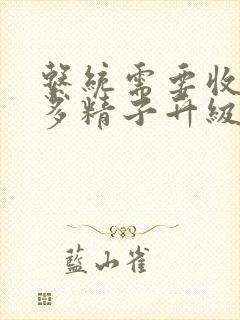 繫統需要收
多精子升級
藍山雀